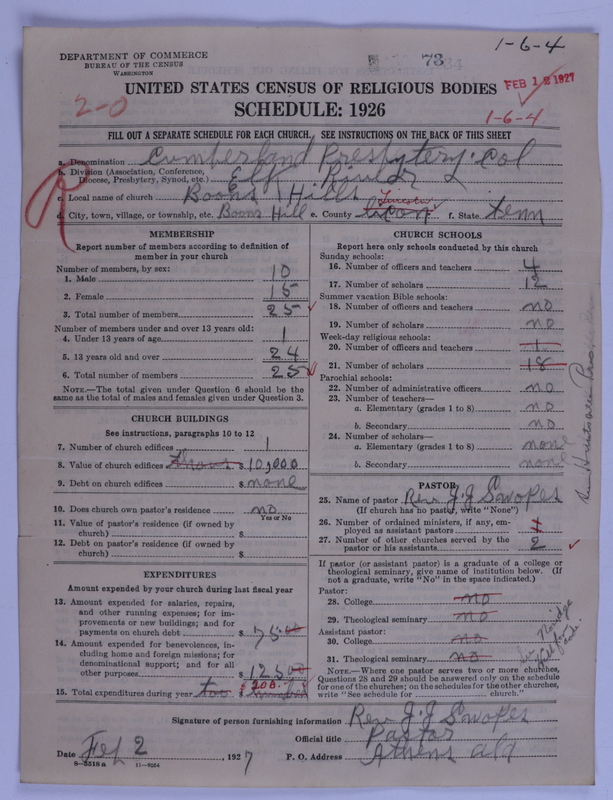 1-6-4
73
DEPARTMENT OF COMMERCE
BUREAU OF THE CENSUS
WASHINGTON
FEB 1 2 1927
2-0
UNITED STATES CENSUS OF RELIGIOUS BODIES
SCHEDULE: 1926
1-6-4
FILL OUT A SEPARATE SCHEDULE FOR EACH CHURCH. SEE INSTRUCTIONS ON THE BACK OF THIS SHEET
a. Denomination Cumberland Presbytery. Col
b. Division (Association, Conference, Diocese, Presbytery, Synod, etc.) Elk River
R
c. Local name of church Boons Hills
Lincoln
d. City, town, village, or township, etc. Boons Hill e. County f. State Tenn
MEMBERSHIP
Report number of members according to definition of member in your church
Number of members, by sex:
1. Male 10
2. Female 15
3. Total number of members 25
Number of members under and over 13 years old:
4. Under 13 years of age 1
5. 13 years old and over 24
6. Total number of members 25
NOTE.—The total given under Question 6 should be the same as the total of males and females given under Question 3.
CHURCH BUILDINGS
See instructions, paragraphs 10 to 12
7. Number of church edifices 1
8. Value of church edifices $ 10,000
9. Debt on church edifices $ none
10. Does church own pastor's residence no
Yes or No
11. Value of pastor's residence (if owned by church) $
12. Debt on pastor's residence (if owned by church) $
EXPENDITURES
Amount expended by your church during last fiscal year
13. Amount expended for salaries, repairs, and other running expenses; for improvements or new buildings; and for payments on church debt $ 75.00
14. Amount expended for benevolences, including home and foreign missions; for denominational support; and for all other purposes $ 125.00
15. Total expenditures during year two $ 200. hundred
CHURCH SCHOOLS
Report here only schools conducted by this church
Sunday schools:
16. Number of officers and teachers 4
17. Number of scholars 12
Summer vacation Bible schools:
18. Number of officers and teachers no
19. Number of scholars no
Week-day religious schools:
20. Number of officers and teachers 1
21. Number of scholars 18
Parochial schools:
22. Number of administrative officers no
23. Number of teachers—
a. Elementary (grades 1 to 8) no
b. Secondary no
24. Number of scholars—
a. Elementary (grades 1 to 8) none
b. Secondary none
PASTOR
25. Name of pastor Rev J. J Swopes
(If church has no pastor, write "None")
26. Number of ordained ministers, if any, employed as assistant pastors 1
27. Number of other churches served by the pastor or his assistants 2
If pastor (or assistant pastor) is a graduate of a college or theological seminary, give name of institution below. (If not a graduate, write "No" in the space indicated.)
Pastor:
28. College no
29. Theological seminary no
Assistant pastor:
30. College no
31. Theological seminary no
NOTE.—Where one pastor serves two or more churches, Questions 28 and 29 should be answered only on the schedule for one of the churches; on the schedules for the other churches, write "See schedule for church."
Signature of person furnishing information Rev J. J Swopes
Official title Pastor
Date Feb 2, 1927 P. O. Address Athens ala
8-3518a 11-9034